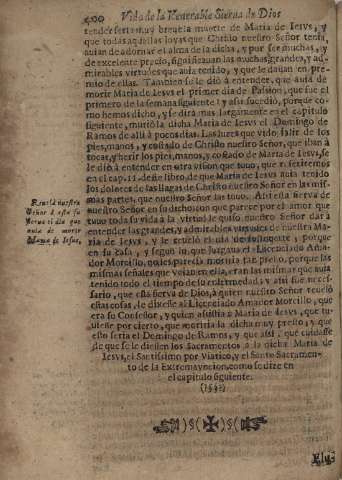 400 Vida de la Venerable Sierva de Dios
tender seria muy breve la muerte de Maria de Iesvs, y
que todas aquellas joyas que Christo nuestro Señor tenia,
auian de adornar el alma de la dicha, y por ser muchas, y
de excelente precio, significauan las muchas, grandes, y ad-
mirables virtudes que auia tenido, y que le dauan en pre-
mio de ellas. Tambien se le diò à entender, que auia de
morir Maria de Iesvs el primer dia de Passion, que fue el
primero de la semana siguiente: y assi sucediò, porque co-
mo hemos dicho, y se dirà mas largamente en el capitulo
siguiente, muriò la dicha Maria de Iesvs el Domingo de
Ramos de alli à pocos dias. Las luzes que vido salir de los
pies, manos, y costado de Christo nuestro Señor, que iban à
tocar, y herir los pies, manos, y costado de Maria de Iesvs, se
le diò à entender en otra vision que tuuo, que referiremos
en el cap. 11. deste libro de que Maria de Iesvs auia tenido
los dolores de las llagas de Christo nuestro Señor en las mis-
mas partes, que nuestro Señor las tuuo.
nuestro Señor en su
tuuo toda su vida à la virtud le quiso nuestro Señor dar à
entender las grandes, y admirables virtudes de nuestra Ma-
ria de Iesvs, y le
en su casa, y segun lo que juzgaua el Licenciado Ama-
dor Morcillo, no les parecia moriria tan presto, porque las
mismas señales que veian en ella, eran las mismas que auia
tenido todo el tiempo de su enfermedad: y assi fue neces-
sario, que esta sierva de Dios, à quien nuestro Señor reuelò
estas cosas, le dixesse al Licenciado Amador Morcillo, que
era su Confessor, y quien assistia à Maria de Iesvs, que tu-
uiesse por cierto, que moriria la dicha muy presto, y que
esto seria el Domingo de Ramos, y que assi cuidasse
de que se le diessen los Sacramentos à la dicha Maria de
Iesvs, el Santissimo por Viatico, y el Santo Sacramen-
to de la Extremavncion, como se dize en
el capitulo siguiente.
Reuelà nuestro
Señor à esta su
sierva el dia que
auia de morir
Maria de Iesus.